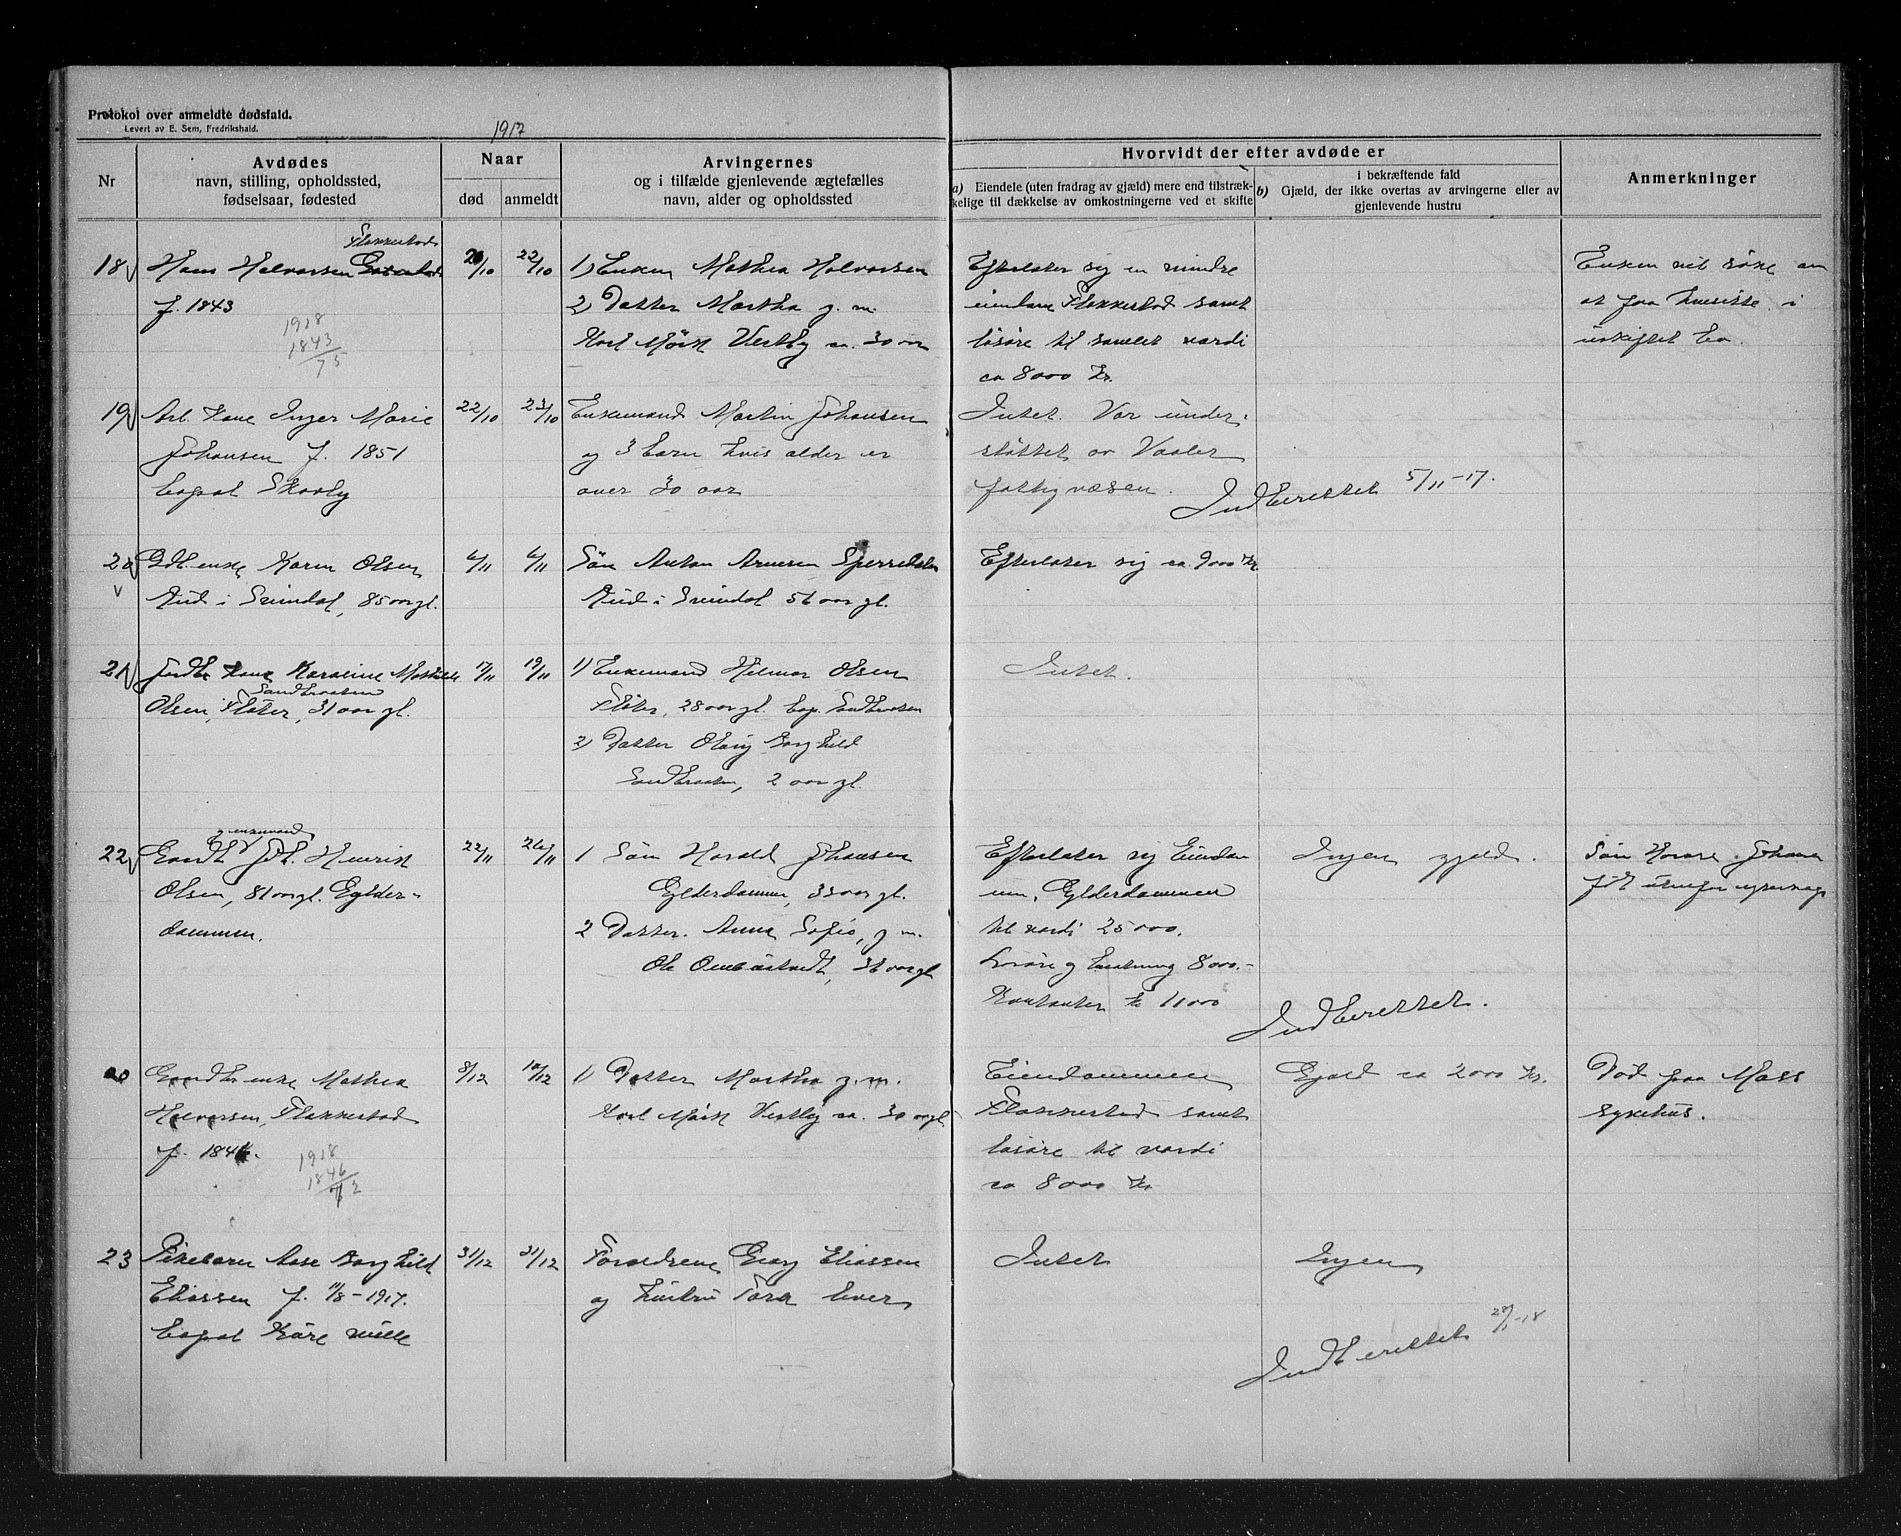 Protokol over anmeldte dødsfald.
Levert av E. Sem, Fredrikshald.
1917
Nr
Avdødes
navn, stilling, opholdssted,
fødselsaar, fødested
Naar
død
anmeldt
Arvingernes
og i tilfælde gjenlevende ægtefælles
navn, alder og opholdssted
Hvorvidt der efter avdøde er
a) Eiendele (uten fradrag av gjæld) mere end tilstræk-
kelige til dækkelse av omkostningerne ved et skifte
b) i bekræftende fald
Gjæld, der ikke overtas av arvingerne eller av
gjenlevende hustru
Anmerkninger
18
Flakkestad
Hans Halvorsen
f. 1843
1918
1843
75
20/10
22/10
1) Enken Mathea Halvorsen
2) Datter Martha g. m.
Karl Mørk Vestby ca. 30 aar
Efterlater sig en mindre
eiendom Flakkestad samt
løsøre til samlet værdi
ca 8000 kr.
Enken vil søke om
at faa hensitte i
uskiftet bo.
19
Arb. kone Inger Marie
Johansen f. 1851
bopæl Skovby
22/10
23/10
Enkemand Martin Johansen
og 3 barn hvis alder er
over 30 aar
Intet. Var under-
støttet av Vaaler
fattigvæsen.
Indberettet 5/11-17.
20
Gdb. enke Karen Olsen
Rud i Svindal, 85 aar gl.
6/11
6/11
Søn Anton Arnesen Sperrebotn
Rud i Svindal 56 aar gl.
Efterlater sig ca. 9000 kr
21
Jordbr kone Karoline Mathilde
Sandbraaten
Olsen, Fløter, 31 aar gl.
17/11
19/11
1) Enkemand Hilmar Olsen
Fløter, 28 aar gl. bop. Sandbraaten
2) Datter Olaug Borghild
Sandbraaten, 2 aar gl.
Intet.
22
g enkemand
Gaardb. Joh. Henrik
Olsen, 81 aar gl. Gylder-
dammen.
22/11
26/11
1 Søn Harald Johansen
Gylderdammen, 33 aar gl.
2 Datter. Anna Sofie, g. m.
Ole 36 aar gl
Efterlater sig Eiendom
men, Gylderdammen
til værdi 25000.
Løsøre g besætning 8000.-
Kontanter kr 11000
Ingen gjeld.
Indberettet.
Søn Harald Johansen
født utenfor egteskap
20
Gaardbr enke Mathea
Halvorsen, Flakkestad
f. 1846.
1918
1846
72
8/12
10/12
1) Datter Martha g. m.
Karl Mørk Vestby ca. 30 aar gl
Eiendommen
Flakkestad samt
løsøre til værdi
ca 8000 kr
Gjæld ca 2000 kr.
Død paa Moss
sykehus.
23
Pikebarn Aase Borghild
Eliassen f. 11/8-1917.
bopæl Kure mølle
31/12
31/12
Forældrene Georg Eliassen
og hustru Tora lever
Intet
Ingen
Indberettet 28/1-18